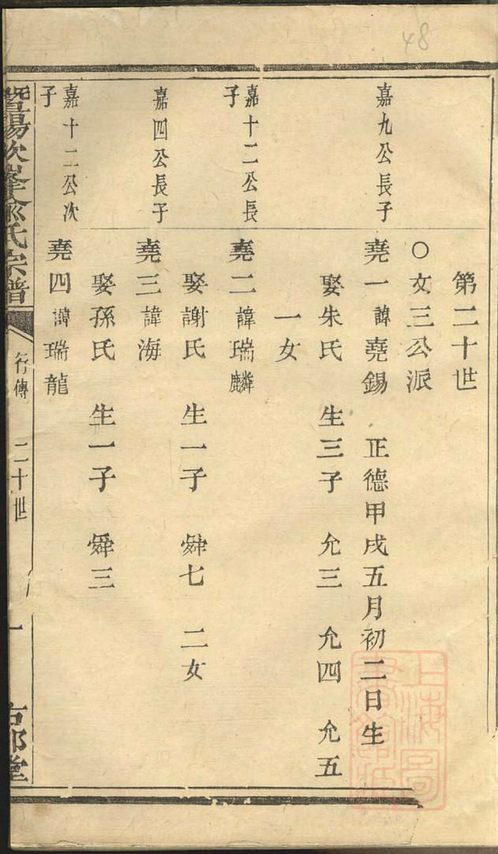 48
第二十世
○文三公派
嘉九公長子
堯一諱堯錫 正德甲戌五月初二日生
娶朱氏 生三子 允三 允四 允五
一女
嘉十二公長
子
堯二諱瑞麟
娶謝氏 生一子 舜七 二女
嘉四公長子
堯三諱海
娶孫氏 生一子 舜三
嘉十二公次
子
堯四諱瑞龍
暨陽次峯俞氏宗譜
行傳 二十世 一
上海圖
書館藏